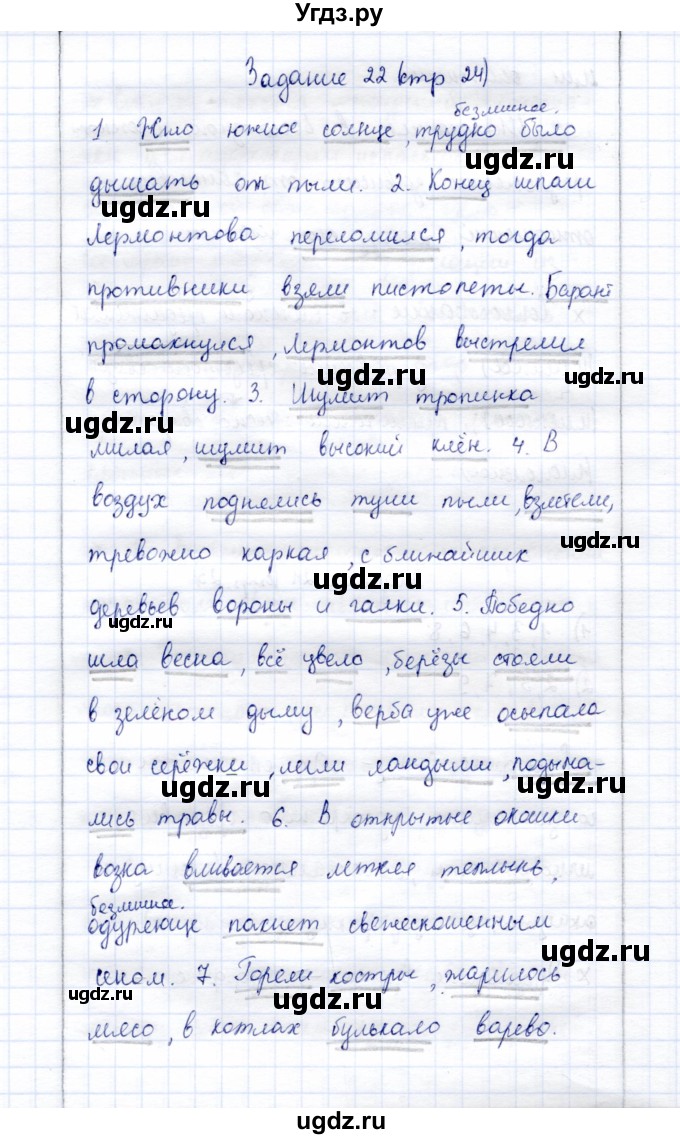 Угдз.ру
Задание 22 (стр 24)
безличное.
1 Жгло южное солнце, трудно было
ugdz.ru
дышать от пыли. 2. Конец шпаги
ugdz.ru
Лермонтова переломился, тогда
противники взяли пистолеты. Барант
промахнулся, Лермонтов выстрелил
ugdz.ru ugdz.ru
в сторону. 3. Шумит тропинка
ugdz.ru
милая, шумит высокий клён. 4. В
воздух поднялись тучи пыли, взлетели,
ugdz.ru
тревожно каркая, с ближайших
ugdz.ru
деревьев вороны и галки. 5. Победно
шла весна, всё цвело, берёзы стояли
ugdz.ru
в зелёном дыму, верба уже осыпала
свои серёжки, цвели ландыши, подыма-
ugdz.ru ugdz.ru
лись травы. 6. В открытые окошки
возка вливается летняя теплынь,
безличное.
одуряюще пахнет свежескошенным
ugdz.ru
сеном. 7. Горели костры, жарилось
ugdz.ru ugdz.ru
мясо, в котлах булькало варево.
ugdz.ru